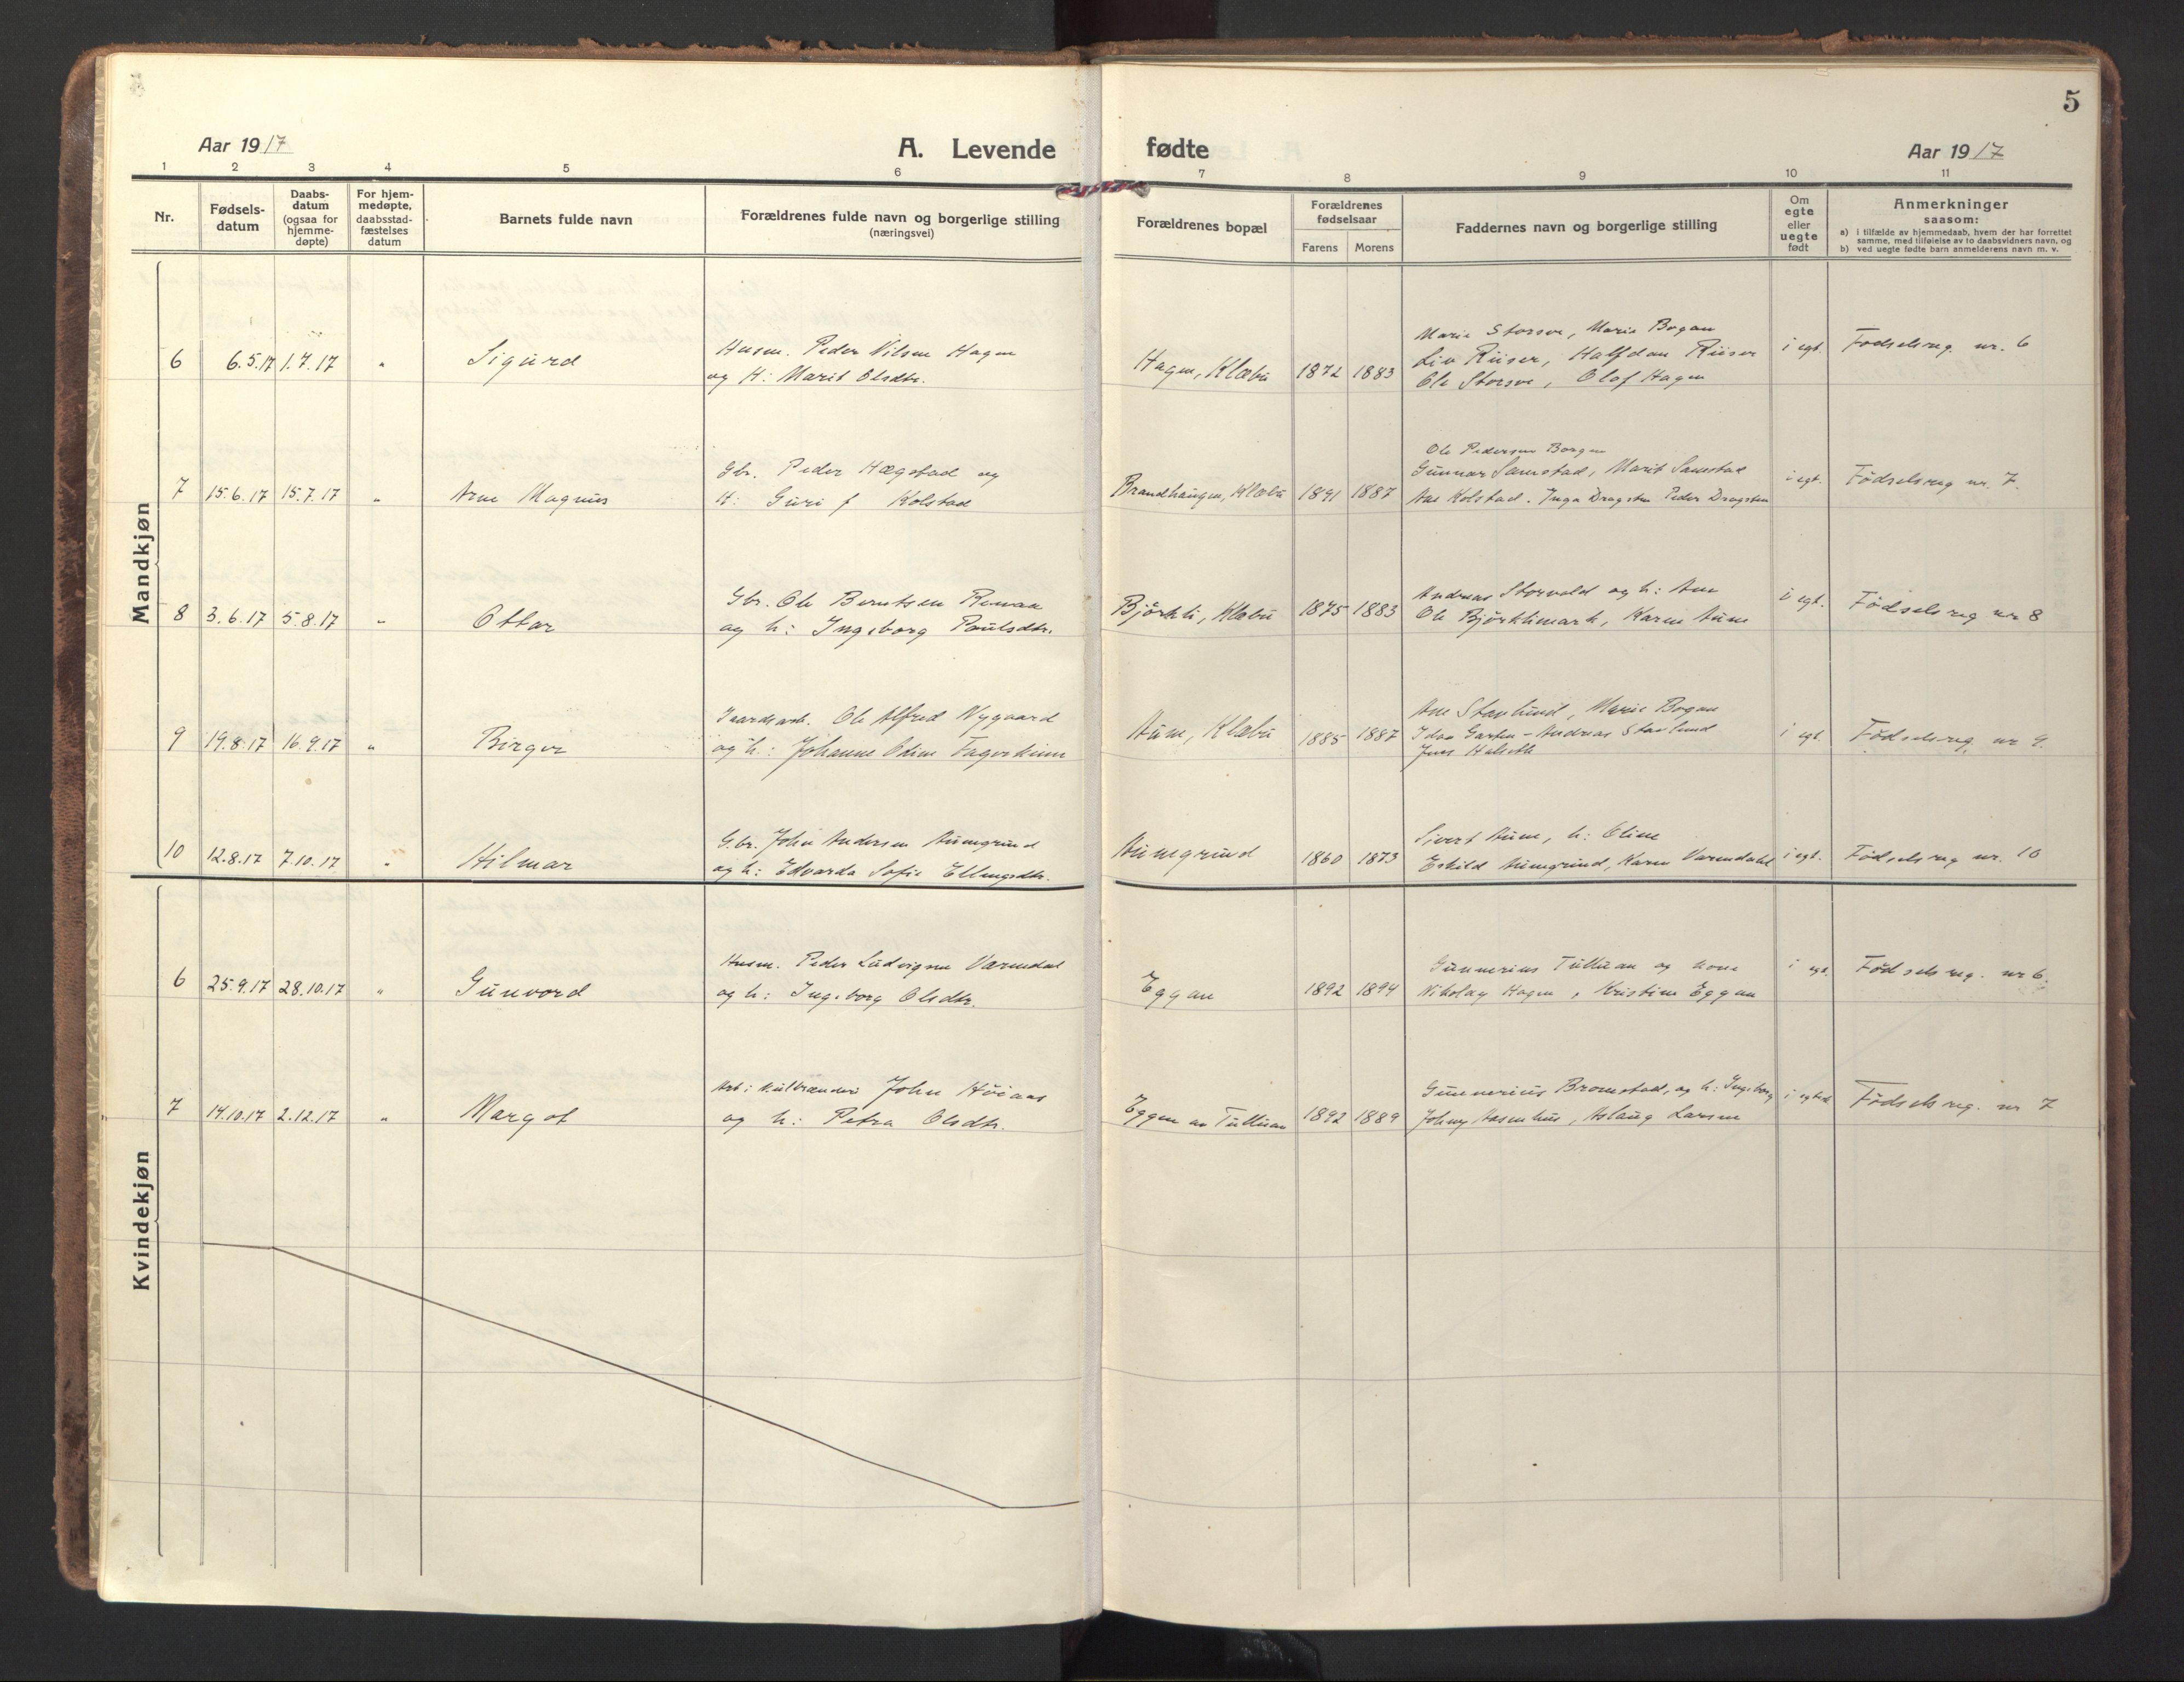 5
Aar 1917
A. Levende fødte
Aar 1917
1 2 3 4 5 6 7 8 9 10 11
Nr.
Fødsels-
datum
Daabs-
datum
(ogsaa for
hjemme-
døpte)
For hjem-
medøpte,
daabsstad-
fæstelses
datum
Barnets fulde navn
Forældrenes fulde navn og borgerlige stilling
(næringsvei)
Forældrenes bopæl
Forældrenes
fødselsaar
Farens Morens
Faddernes navn og borgerlige stilling
Om
egte
eller
uegte
født
Anmerkninger
saasom:
a) i tilfælde av hjemmedaab, hvem der har forrettet
samme, med tilføielse av to daabsvidners navn, og
b) ved uegte fødte barn anmelderens navn m. v.
Mandkjøn
6 6.5.17 1.7.17 " Sigurd
Husm. Peder Nilsen Hagen
og H: Marit Olsdtr.
Hagen, Klæbu 1872 1883
Marie Storsve, Marie Bogan
Liv Riiser, Halfdan Riiser
Ole Storsve, Olof Hagen
i egt. Fødselsreg. nr. 6
7 15.6.17 15.7.17 " Arne Magnus
Gbr. Peder Hægstad og
H: Guri f Kolstad
Brandhaugen, Klæbu 1891 1887
Ole Pedersen Borgen
Gunnar Samstad, Marit Samstad
Ane Kolstad. Inga Dragsten Peder Dragsten
i egt. Fødselsreg nr. 7.
8 3.6.17 5.8.17 " Ottar
Gbr. Ole Berntsen
og h: Ingeborg Poulsdtr.
Björkli, Klæbu 1875 1883
Andreas Storvold og h: Ane
Ole Björklimark, Karen Aune
i egt. Fødselsreg nr 8
9 19.8.17 16.9.17 " Birger
Ole Alfred Nygaard
og h: Johanne Oline Fagerheim
Aune, Klæbu 1885 1887
Ane Stavlund, Marie Bogan
Idar Garten - Andreas Stavlund
Jens Halseth
i egt Fødselsreg. nr 9.
10 12.8.17 7.10.17 " Hilmar
G.br. John Andersen Aunegrind
og h: Edvarda Sofie Ellingsdtr.
Aunegrind 1860 1873
Sivert Aune, h: Oline
Eskild Aunegrind, Karen Varmdahl
i egt. Fødselsreg nr. 10
Kvindekjøn
6 25.9.17 28.10.17 " Gunvord
Husm. Peder Ludvigsen Varmdal
og h: Ingeborg Olsdtr.
Eggan 1892 1894
Gunnerius Tulluan og kone
Nikolay Hagen, Kristine Eggan
i egt. Fødselsreg. nr 6.
7 14.10.17 2.12.17 " Margot
Arb. i kulbrænderi John Høiaas
og h: Petra Olsdtr.
Eggen av Tulluan 1892 1889
Gunnerius Bromstad, og h: Ingeborg
Johny Aasenhus, Aslaug Larsen
i egtesk Fødselsreg. nr 7